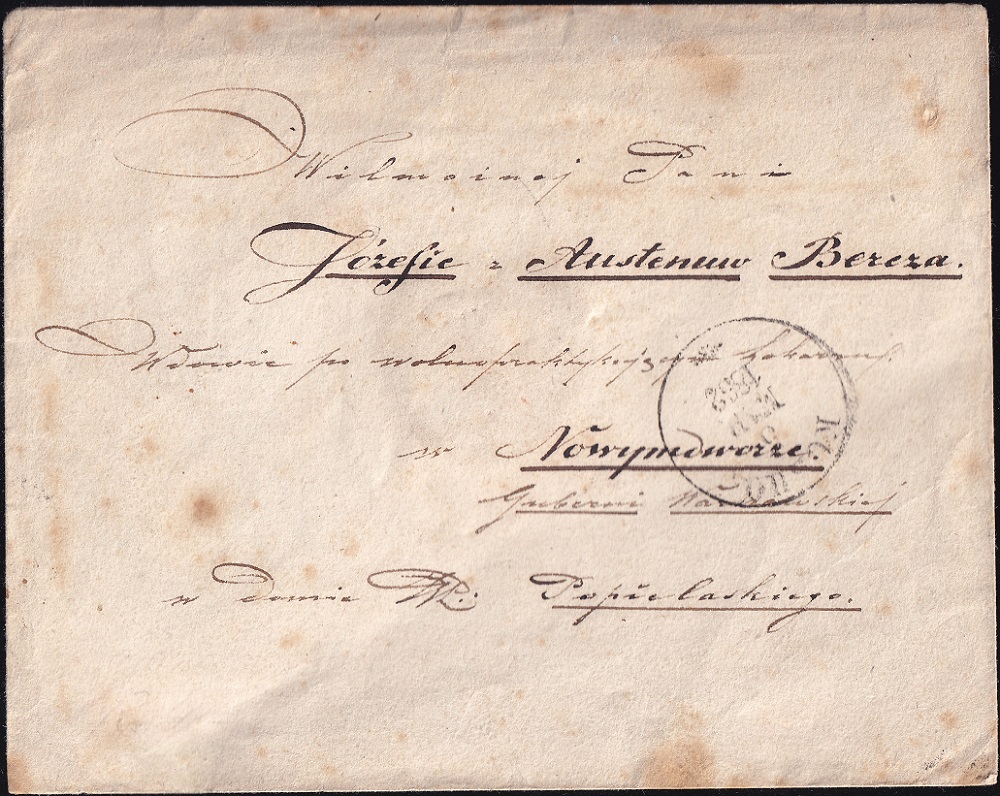 Wielmożnej Pani
Józefie z Austenuw Bereza.
Wdowie po wolnopraktykującym Lekarzu
w Nowymdworze.
Guberni Warszawskiej
w domie W.: Popielaskiego.
1882